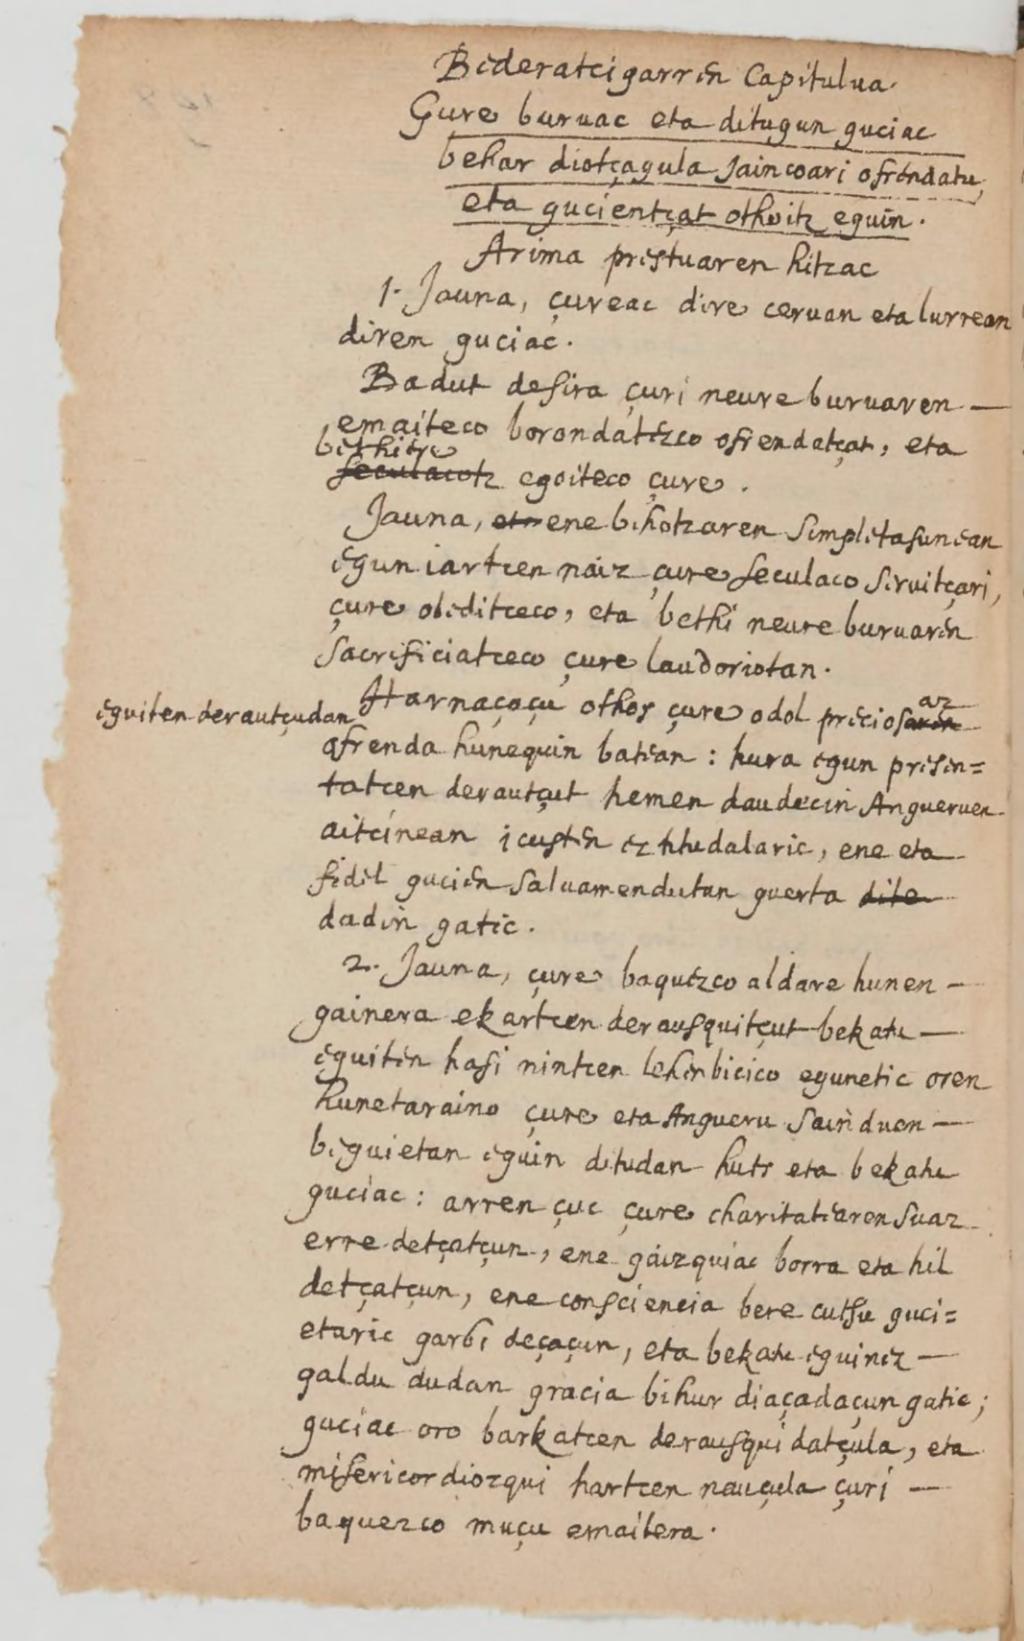 Bederatcigarren Capitulua.
Gure buruac eta ditugun guciac
behar diotçagula Jaincoari ofrendatu,
eta gucientçat othoitz eguin.
Arima prestuaren hitzac
1. Jauna, çureac dire ceruan eta lurrean
diren guciac.
Badut desira çuri neure buruaren
emaiteco borondatezco ofrendatçat, eta
bethitre
seculacotz egoiteco çure.
Jauna, ene bihotzaren simpletasunean
egun iartcen naiz çure seculaco siruitçari,
çure obeditceco, eta bethi neure buruaren
sacrificiatceco çure laudoriotan.
Har naçaçu othoi çure odol preciosaz
eguiten derautçudan
ofrenda hunequin batean: hura egun presen=
tatcen derautçut hemen daudecin Angueruen
aitcinean icusten ez tiludalaric, ene eta
fidel gucien saluamendutan guerta dite
dadin gatic.
2. Jauna, çure baquezco aldare hunen
gainera ekartcen derausquitçut bekatu
eguiten hasi nintcen lehenbicico egunetic oren
hunetaraino çure eta Angueru sainduen
beguietan eguin ditudan huts eta bekatu
guciac: arren çuc çure charitatearen suaz
erre detçatçun, ene gaizquiac borra eta hil
detçatçun, ene consciencia bere cutsu guci=
etaric garbi deçaçun, eta bekatu eguinez
galdu dudan gracia bihur diaçadaçun gatic;
guciac oro barkatcen derausquidatçula, eta
misericordiozqui hartcen nauçula çuri
baquezco muçu emaitera.